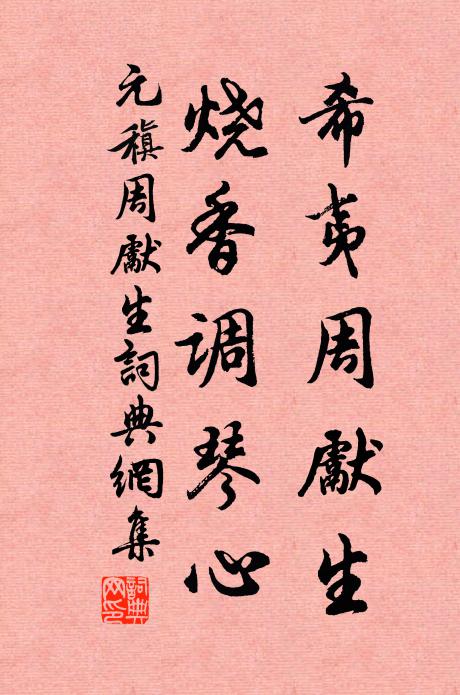 希夷周獻生
烧香调琴心
元稹周獻生詞典網集
詞典网印